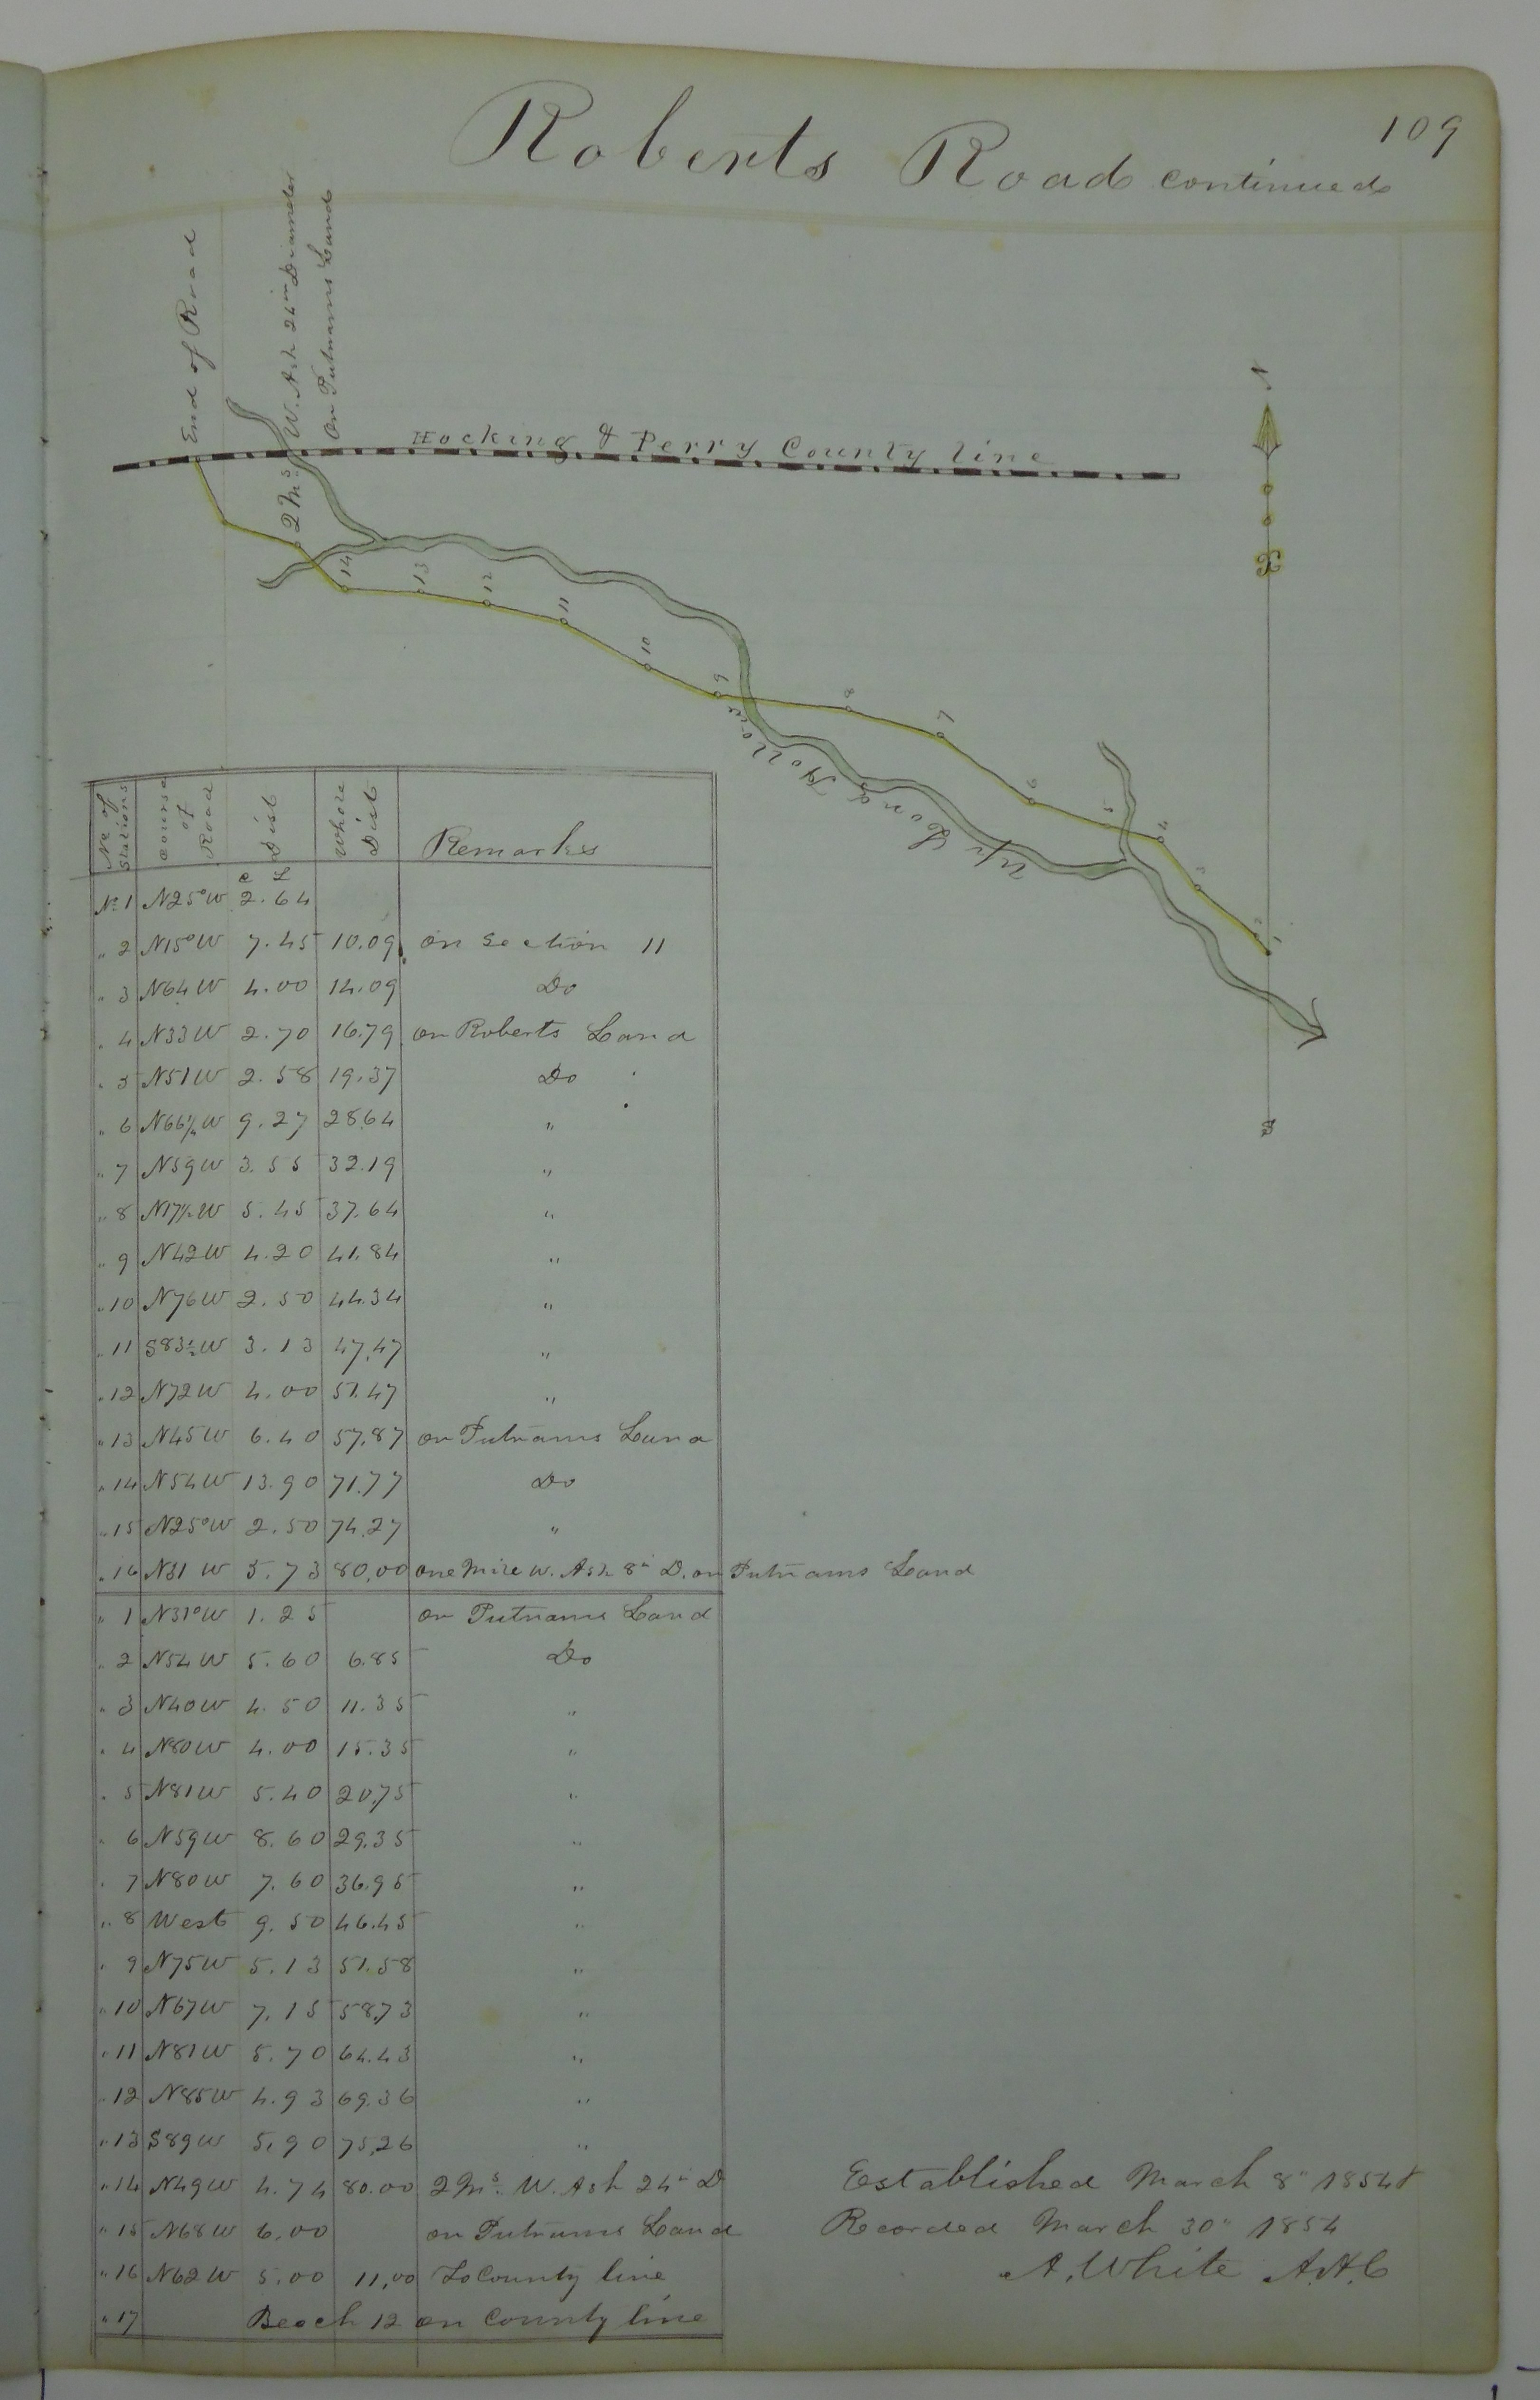 109
Roberts Road continued
End of Road
W. Ash 24in Diameter
On Putnams Land
Hocking & Perry County line
2 Ms
14 13 12 11 10 9 8 7 6 5 4 3 2 1
Up Long Hollow
N
S
No of Stations | Course of Road | Dist | Whole Dist | Remarks
C L
No 1 N25°W 2.64
" 2 N15°W 7.45 10.09 on Section 11
" 3 N64W 4.00 14.09 Do
" 4 N33W 2.70 16.79 on Roberts Land
" 5 N51W 2.58 19.37 Do
" 6 N66¼W 9.27 28.64 "
" 7 N59W 3.55 32.19 "
" 8 N17½W 5.45 37.64 "
" 9 N42W 4.20 41.84 "
" 10 N76W 2.50 44.34 "
" 11 S83½W 3.13 47.47 "
" 12 N72W 4.00 51.47 "
" 13 N45W 6.40 57.87 on Putnams Land
" 14 N54W 13.90 71.77 Do
" 15 N25°W 2.50 74.27 "
" 16 N31 W 5.73 80.00 one Mile W. Ash 8in D. on Putnams Land
" 1 N31°W 1.25 on Putnams Land
" 2 N54W 5.60 6.85 Do
" 3 N40W 4.50 11.35 "
" 4 N80W 4.00 15.35 "
" 5 N81W 5.40 20.75 "
" 6 N59W 8.60 29.35 "
" 7 N80W 7.60 36.95 "
" 8 West 9.50 46.45 "
" 9 N75W 5.13 51.58 "
" 10 N67W 7.15 58.73 "
" 11 N81W 5.70 64.43 "
" 12 N85W 4.93 69.36 "
" 13 S89W 5.90 75.26 "
" 14 N49W 4.74 80.00 2 Ms. W. Ash 24in D
" 15 N68W 6.00 on Putnams Land
" 16 N62W 5.00 11.00 To County line
" 17 Beech 12 on County line
Established March 8" 1854
Recorded March 30" 1854
A. White A.H.C